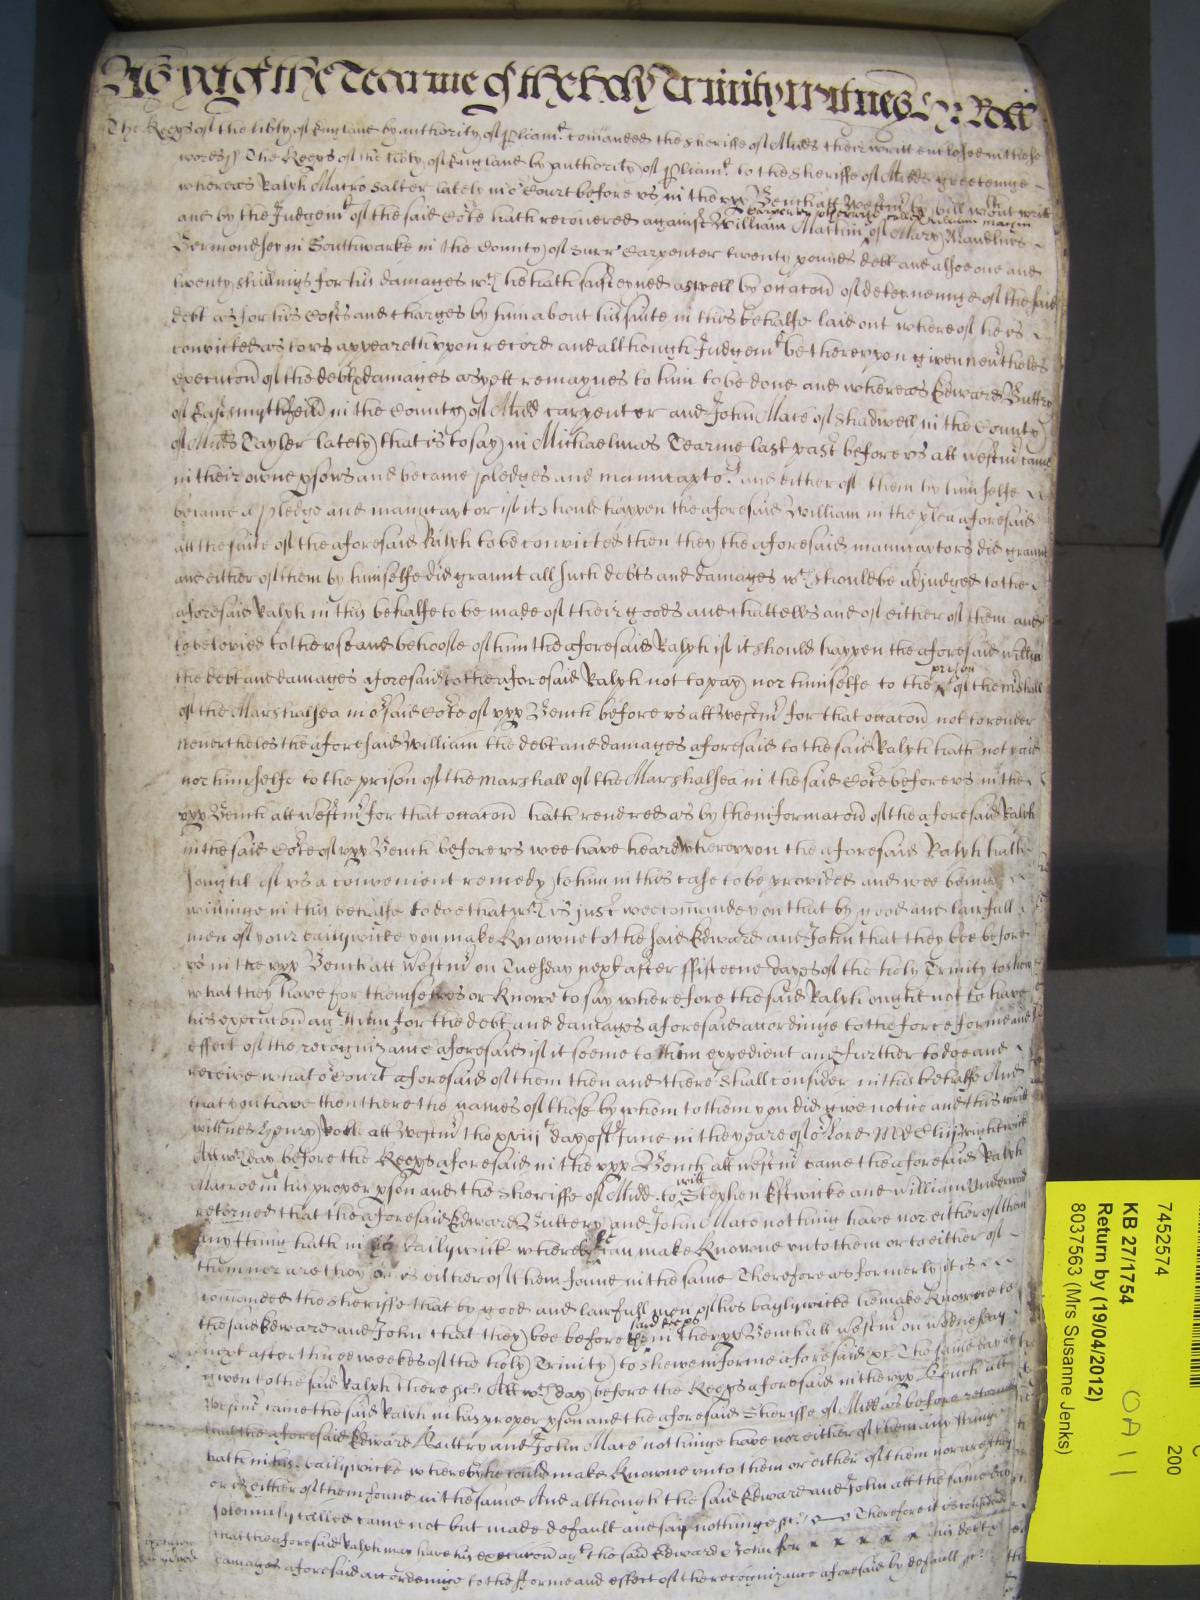 As yet of the Tearme of the holy Trinity witnes H: Rolle
The Keeps of the libty of England by authority of pliamt. comanded the sheriffe of Midds their writt enclosed in these
words ss The Keeps of the libty of England by authority of pliamt to the Sheriffe of Midds greetinge
whereas Ralph Macro Salter lately in or Court before us in the upp Bench att Westmr by bill wthout writt
and by the Judgemt of the said Corte hath recovered against William Martin of Mary Maudlins
Bermondsey in Southwarke in the County of Surr Carpenter twenty pounds debt and alsoe one and
twenty shillings for his damages wch he hath susteyned aswell by occacon of deteyneinge of the said
debt as for his Costs and charges by him about his suite in this behalfe laid out whereof he is
convicted as to us appeareth uppon record and although Judgemt be thereuppon given nevertheles
execucon of the debt & damages as yett remaynes to him to be done and whereas Edward Buttry
of in the County of Midd carpenter and John Mace of Shadwell in the County
of Midds Tayler lately that is to say in Michaelmas Tearme last past before us att Westmr came
in their owne psons and became pledges and manucaptors and either of them by himselfe
became a pledge and manucaptor if it should happen the aforesaid William in the plea aforesaid
att the suite of the aforesaid Ralph to be convicted then they the aforesaid manucaptors did graunt
and either of them by himselfe did graunt all such debts and damages wch should be adjudged to the
aforesaid Ralph in this behalfe to be made of their goods and chattells and of either of them and
to be levied to the use and behoofe of him the aforesaid Ralph if it should happen the aforesaid Willm
prison
the debt and damages aforesaid to the aforesaid Ralph not to pay nor himselfe to the of the mshall
of the Marshalsea in or said Corte of upp Bench before us att Westmr for that occacon not to render
nevertheles the aforesaid William the debt and damages aforesaid to the said Ralph hath not paid
nor himselfe to the prison of the marshall of the Marshalsea in the said Corte before us in the
upp Bench att Westmr for that occacon hath rendred as by the informacon of the aforesaid Ralph
in the said Corte of upp Bench before us wee have heard whereuppon the aforesaid Ralph hath
sought of us a convenient remedy to him in this case to be provided and wee being
willinge in this behalfe to doe that wch is just wee comande you that by good and lawfull
men of your bailywicke you make Knowne to the said Edward and John that they bee before
us in the upp Bench att Westmr on Tuesday next after fifteene dayes of the holy Trinity to shew
what they have for themselves or Knowe to say wherefore the said Ralph ought not to have
his execucon agt them for the debt and damages aforesaid accordinge to the force forme and
effect of the recognizance aforesaid if it seeme to them expedient and further to doe and
receive what or Court aforesaid of them then and there shall consider in this behalfe And
that you have then there the names of those by whom to them you did give notice and this writt
witnes Henry Rolle att Westmr the xviii day of June in the yeare of or Lord MDCliij
Att wch day before the Keeps aforesaid in the upp Bench att Westmr came the aforesaid Ralph
Macroe in his proper pson and the Sheriffe of Midd to witt Stephen Estwicke and William Underwood
retorned that the aforesaid Edward Buttery and John Mace nothing have nor either of them
anything hath in bailywick whereby can make Knowne unto them or to either of
them nor are they or is either of them found in the same Therefore as formerly it is
comanded the sheriffe that by good and lawfull men of his baylywicke he make Knowne to
said Keeps
the said Edward and John that they bee before the in the upp Bench att Westmr on Wednesday
next after three weekes of the holy Trinity to shewe in forme aforesaid &c The same day is
given to the said Ralph there &c Att wch day before the Keeps aforesaid in the upp Bench att
Westmr came the said Ralph in his proper pson and the aforesaid Sheriffe of Midd as before retorned
that the aforesaid Edward Buttry and John Mace nothinge have nor either of them any thinge
hath in his bailywicke whereby he could make Knowne unto them or either of them nor are they
or is either of them found in the same And although the said Edward and John att the same day
solemnly called came not but made default and say nothinge &c Therefore it is considered
that the aforesaid Ralph may have his execucon agt the said Edward & John for his debt &
damages aforesaid accordinge to the forme and effect of the recognizance aforesaid by default &c
7452574
200
KB 27/1754
Return by (19/04/2012)
8037563 (Mrs Susanne Jenks)